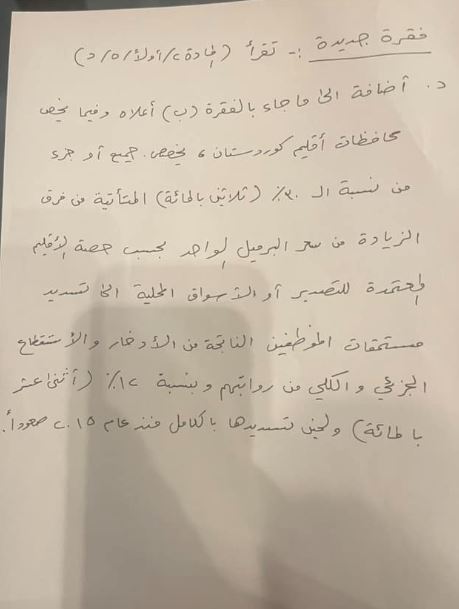 فقرة جديدة :- تقرأ (المادة ٢/أولاً/٥/د)
د. أضافة الى ما جاء بالفقرة (ب) أعلاه وفيما يخص
محافظات أقليم كوردستان ، يخصص جميع أو جزء
من نسبة الـ ٣٠٪ (ثلاثين بالمائة) المتأتية من فرق
الزيادة من سعر البرميل الواحد بحسب حصة الأقليم
المعتمدة للتصدير أو الأسواق المحلية الى تسديد
مستحقات الموظفين الناتجة من الأدخار والأستقطاع
الجزئي والكلي من رواتبهم وبنسبة ١٢٪ (أثنى عشر
بالمائة) ولحين تسديدها بالكامل منذ عام ٢٠١٥ صعوداً.